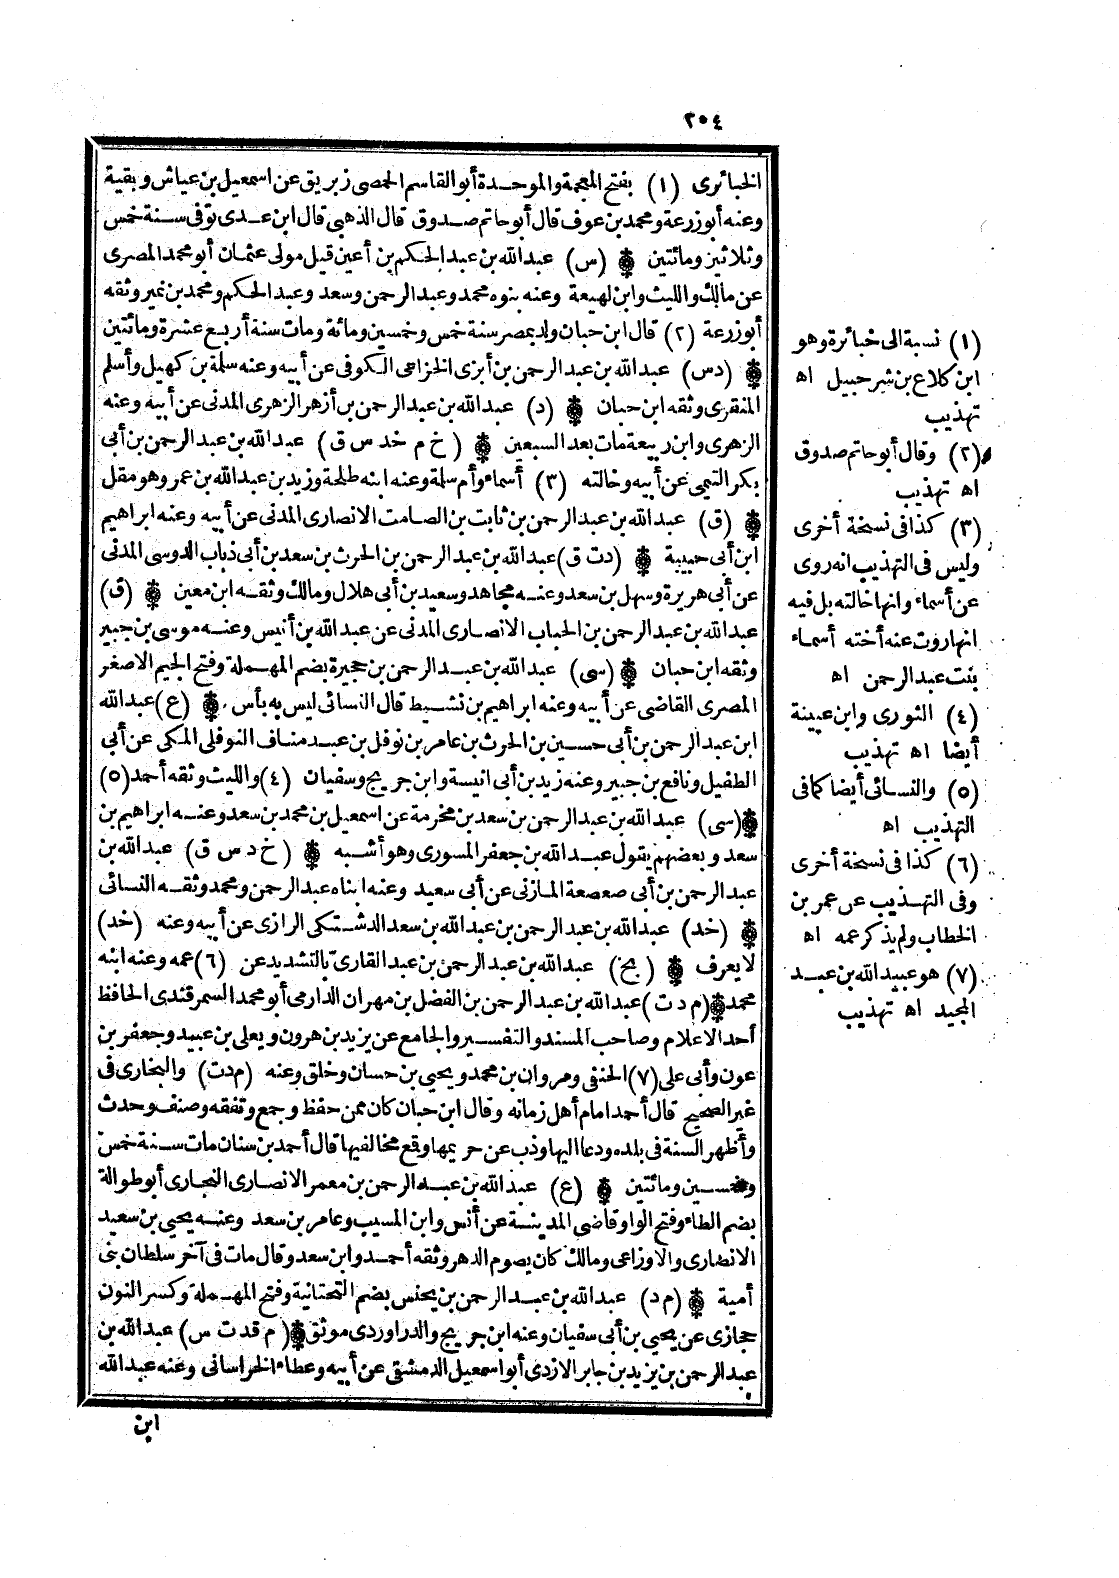 ٢٠٤
الخبائرى (١) بفتح المعجمة والموحدة أبو القاسم الحمصى زبريق عن اسمعيل بن عياش وبقية
وعنه أبو زرعة ومحمد بن عوف قال أبو حاتم صدوق قال الذهبى قال ابن عدى توفى سنة خمس
وثلاثين ومائتين ۞ (س) عبد الله بن عبد الحكم بن أعين قيل مولى عثمان أبو محمد المصرى
عن مالك والليث وابن لهيعة وعنه بنوه محمد وعبد الرحمن وسعد وعبد الحكم ومحمد بن نمير وثقه
أبو زرعة (٢) قال ابن حبان ولد بمصر سنة خمس وخمسين ومائة ومات سنة أربع عشرة ومائتين
۞ (دس) عبد الله بن عبد الرحمن بن أبزى الخزاعى الكوفى عن أبيه وعنه سلمة بن كهيل وأسلم
المنقرى وثقه ابن حبان ۞ (د) عبد الله بن عبد الرحمن بن أزهر الزهرى المدنى عن أبيه وعنه
الزهرى وابن ربيعة مات بعد السبعين ۞ (خ م خد س ق) عبد الله بن عبد الرحمن بن أبى
بكر التيمى عن أبيه وخالته (٣) أسماء وأم سلمة وعنه ابنه طلحة وزيد بن عبد الله بن عمر وهو مقل
۞ (ق) عبد الله بن عبد الرحمن بن ثابت بن الصامت الانصارى المدنى عن أبيه وعنه ابراهيم
ابن أبى حبيبة ۞ (دت ق) عبد الله بن عبد الرحمن بن الحرث بن سعد بن أبى ذباب الدوسى المدنى
عن أبى هريرة وسهل بن سعد وعنه مجاهد وسعيد بن أبى هلال ومالك وثقه ابن معين ۞ (ق)
عبد الله بن عبد الرحمن بن الحباب الانصارى المدنى عن عبد الله بن أنيس وعنه موسى بن جبير
وثقه ابن حبان ۞ (سى) عبد الله بن عبد الرحمن بن حجيرة بضم المهملة وفتح الجيم الاصغر
المصرى القاضى عن أبيه وعنه ابراهيم بن نشيط قال النسائى ليس به بأس ۞ (ع) عبد الله
ابن عبد الرحمن بن أبى حسين بن الحرث بن عامر بن نوفل بن عبد مناف النوفلى المكى عن أبى
الطفيل ونافع بن جبير وعنه زيد بن أبى انيسة وابن جريج وسفيان (٤) والليث وثقه أحمد (٥)
۞ (سى) عبد الله بن عبد الرحمن بن سعد بن مخرمة عن اسمعيل بن محمد بن سعد وعنه ابراهيم بن
سعد وبعضهم يقول عبد الله بن جعفر المسورى وهو أشبه ۞ (خ د س ق) عبد الله بن
عبد الرحمن بن أبى صعصعة المازنى عن أبى سعيد وعنه ابناه عبد الرحمن ومحمد وثقه النسائى
۞ (خد) عبد الله بن عبد الرحمن بن عبد الله بن سعد الدشتكى الرازى عن أبيه وعنه (خد)
لا يعرف ۞ (بخ) عبد الله بن عبد الرحمن بن عبد القارىّ بالتشديد عن (٦) عمه وعنه ابنه
محمد ۞ (م د ت) عبد الله بن عبد الرحمن بن الفضل بن مهران الدارمى أبو محمد السمرقندى الحافظ
أحد الاعلام وصاحب المسند والتفسير والجامع عن يزيد بن هرون ويعلى بن عبيد وجعفر بن
عون وأبى على (٧) الحنفى ومروان بن محمد ويحيى بن حسان وخلق وعنه (م دت) والبخارى فى
غير الصحيح قال أحمد امام أهل زمانه وقال ابن حبان كان ممن حفظ وجمع وتفقه وصنف وحدث
وأظهر السنة فى بلده ودعا اليها وذب عن حريمها وقمع مخالفيها قال أحمد بن سنان مات سنة خمس
وخمسين ومائتين ۞ (ع) عبد الله بن عبد الرحمن بن معمر الانصارى النجارى أبو طوالة
بضم الطاء وفتح الواو قاضى المدينة عن أنس وابن المسيب وعامر بن سعد وعنه يحيى بن سعيد
الانصارى والاوزاعى ومالك كان يصوم الدهر وثقه أحمد وابن سعد وقال مات فى آخر سلطان بنى
أمية ۞ (م د) عبد الله بن عبد الرحمن بن يحنس بضم التحتانية وفتح المهملة وكسر النون
حجازى عن يحيى بن أبى سفيان وعنه ابن جريج والدراوردى موثق ۞ (م قدت س) عبد الله بن
عبد الرحمن بن يزيد بن جابر الازدى أبو اسمعيل الدمشقى عن أبيه وعطاء الخراسانى وعنه عبد الله
ابن
(١) نسبة الى خبائرة وهو
ابن كلاع بن شرحبيل اه
تهذيب
(٢) وقال أبو حاتم صدوق
اه تهذيب
(٣) كذا فى نسخة أخرى
وليس فى التهذيب انه روى
عن أسماء وانها خالته بل فيه
انها روت عنه أخته أسماء
بنت عبد الرحمن اه
(٤) الثورى وابن عيينة
أيضا اه تهذيب
(٥) والنسائى أيضا كما فى
التهذيب اه
(٦) كذا فى نسخة أخرى
وفى التهذيب عن عمر بن
الخطاب ولم يذكر عمه اه
(٧) هو عبيد الله بن عبد
المجيد اه تهذيب